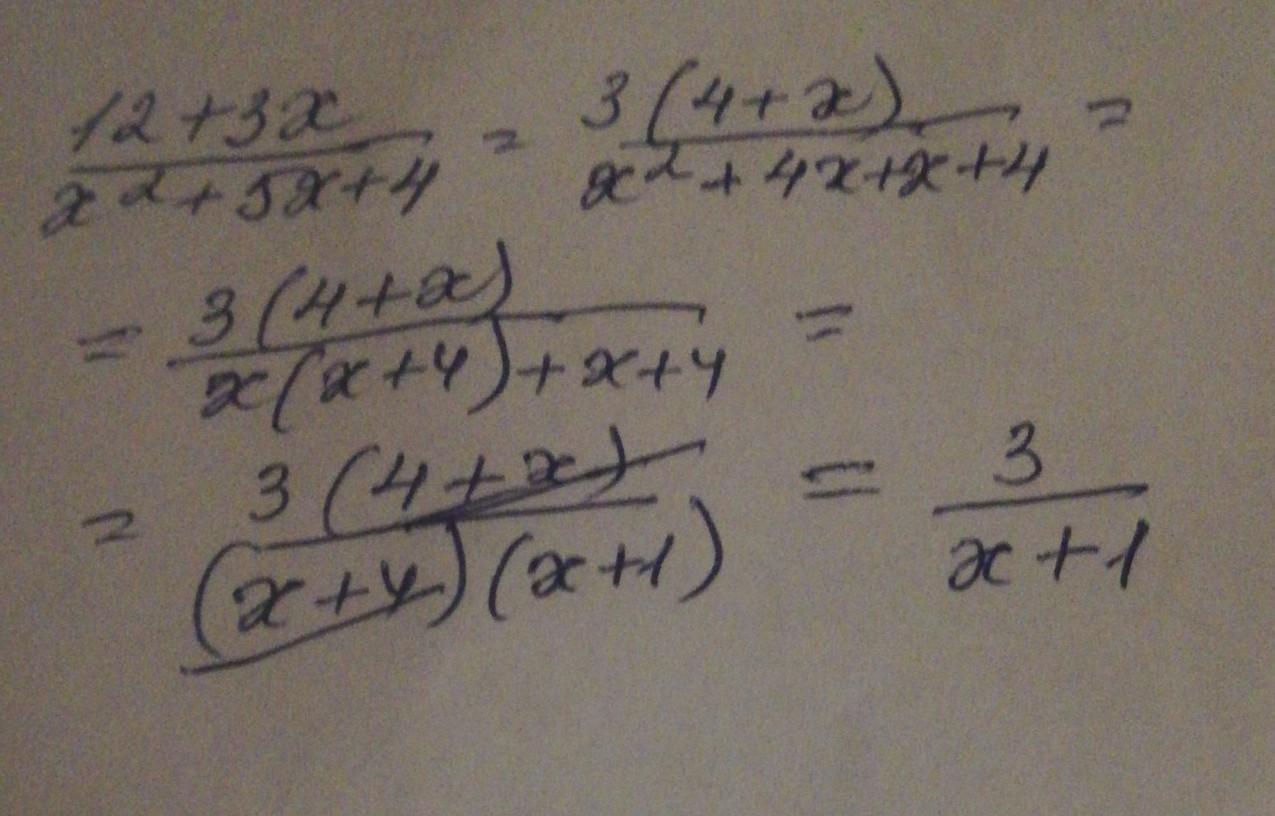 12+3x / x²+5x+4 = 3(4+x) / x²+4x+x+4 =
= 3(4+x) / x(x+4)+x+4 =
= 3(4+x) / (x+4)(x+1) = 3 / x+1